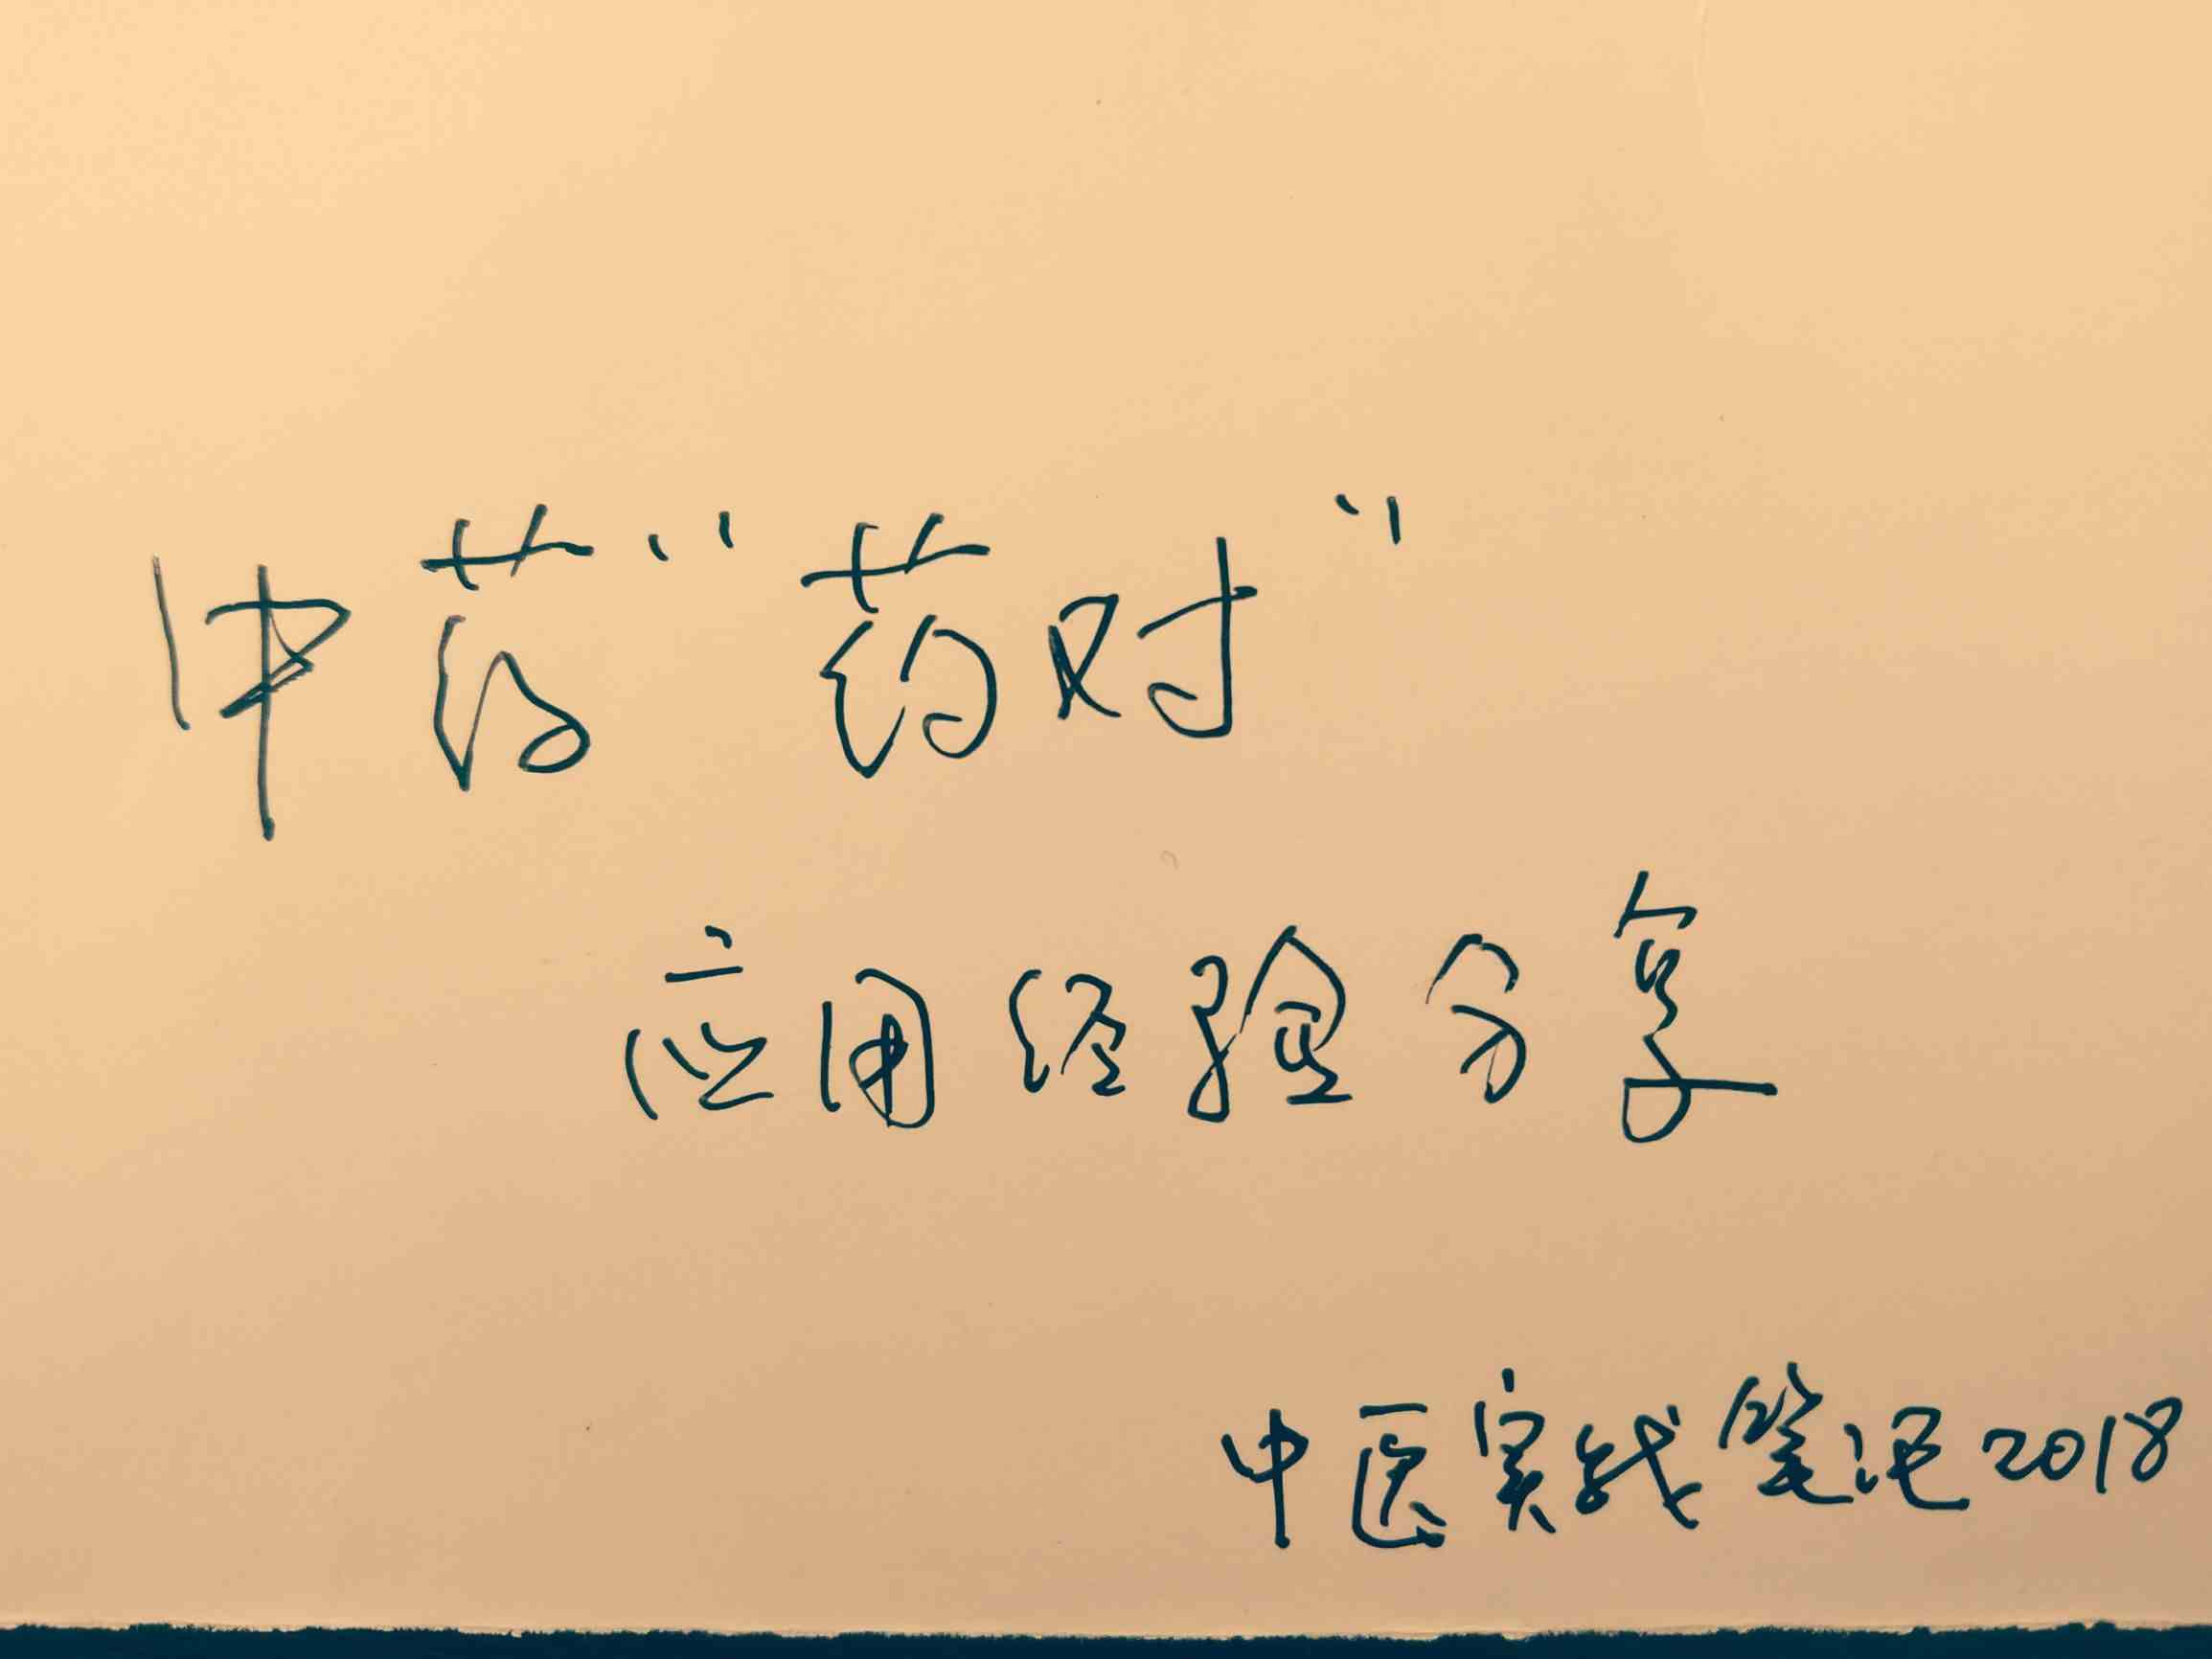 中药“药对”
应用经验分享
中医实践笔记2018